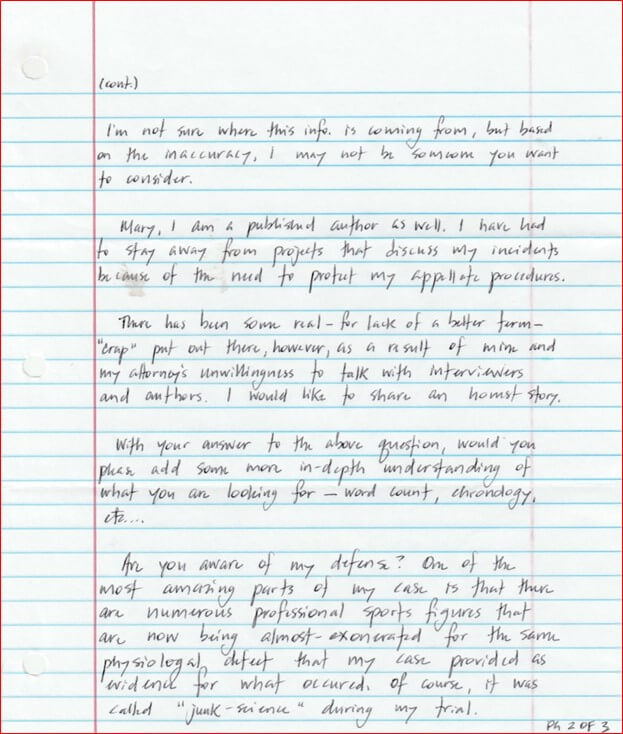 (cont.)
I'm not sure where this info. is coming from, but based
on the inaccuracy, I may not be someone you want
to consider.
Mary, I am a published author as well. I have had
to stay away from projects that discuss my incidents
because of the need to protect my appellate procedures.
There has been some real - for lack of a better term -
"crap" put out there, however, as a result of mine and
my attorney's unwillingness to talk with interviewers
and authors. I would like to share an honest story.
With your answer to the above question, would you
please add some more in-depth understanding of
what you are looking for - word count, chronology,
etc....
Are you aware of my defense? One of the
most amazing parts of my case is that there
are numerous professional sports figures that
are now being almost-exonerated for the same
physiologal defect that my case provided as
evidence for what occured. Of course, it was
called "junk-science" during my trial.
PG 2 OF 3